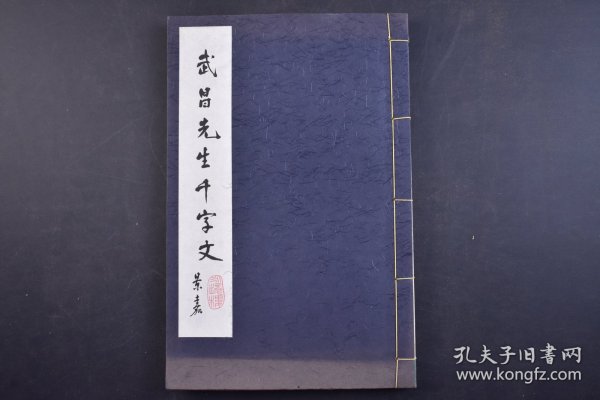 武昌先生千字文
景嘉
孔夫子旧書网
www.kongfz.com